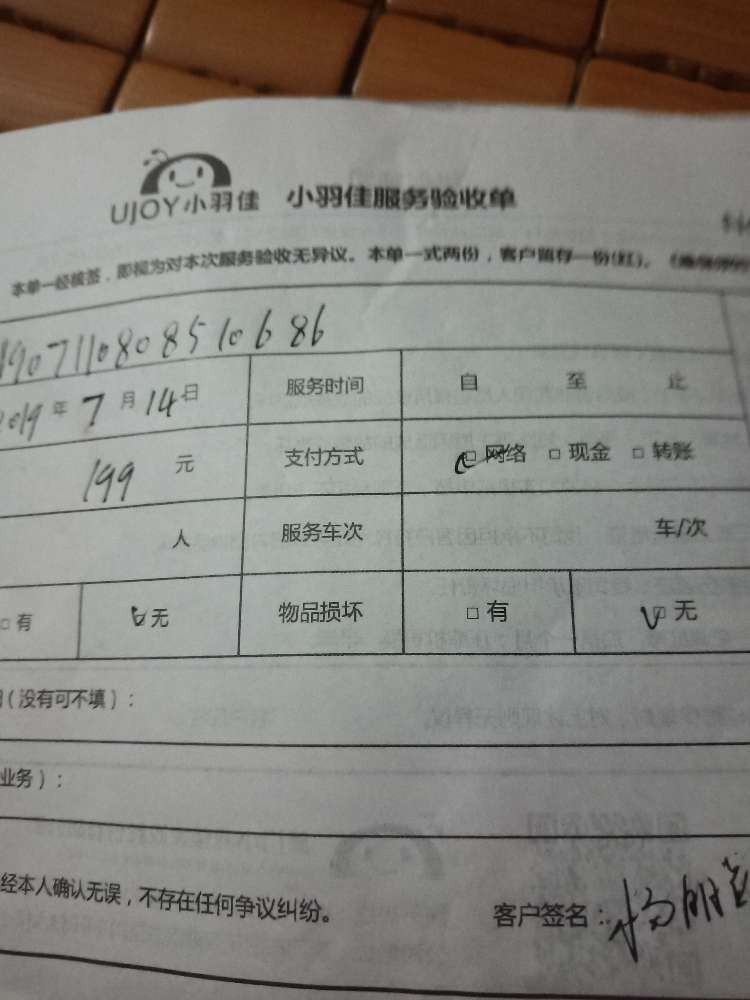 UJOY小羽佳 小羽佳服务验收单
本单一经核签，即视为对本次服务验收无异议。本单一式两份，客户留存一份(红)。
190711080851068 6
2019年7月14日 服务时间 自 至 止
199元 支付方式 □网络 □现金 □转账
人 服务车次 车/次
□有 □无 物品损坏 □有 □无
(没有可不填)：
业务)：
经本人确认无误，不存在任何争议纠纷。 客户签名：杨